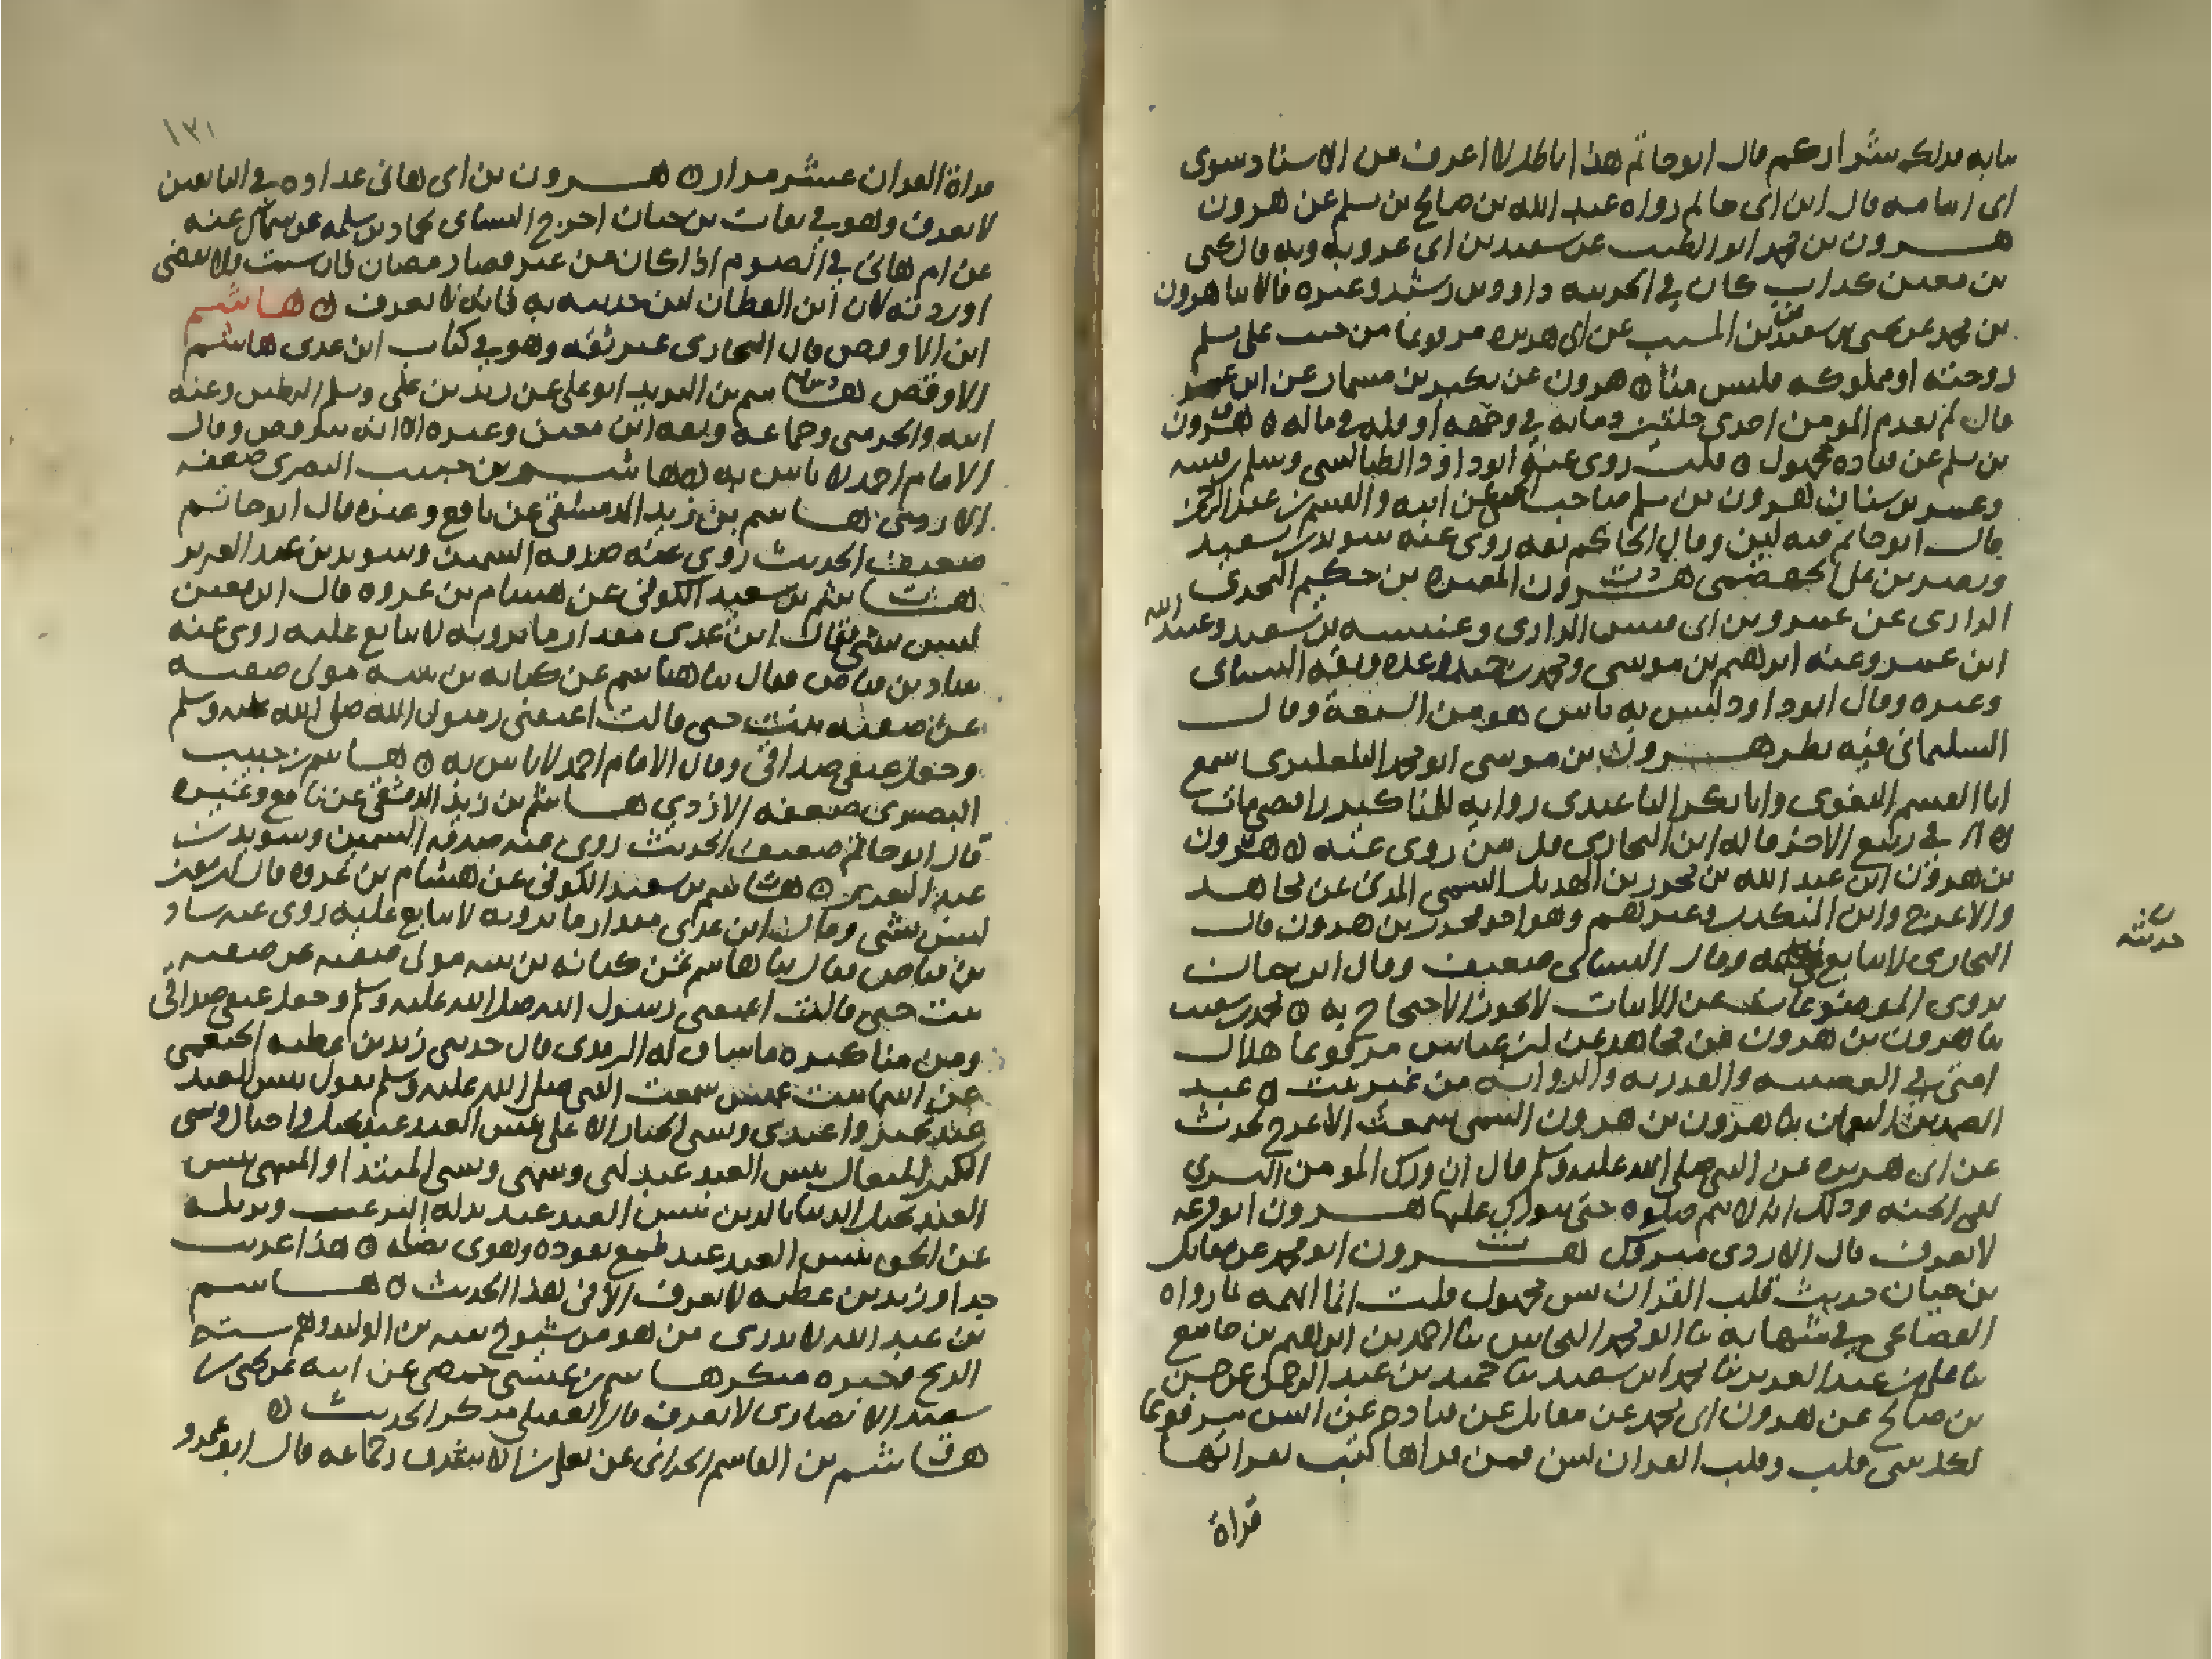 قال ابو حاتم هذا باطل لا اعرف من الاسناد سوى
ابي اسامه قال ابن ابي حاتم رواه عبد الله بن صالح بن مسلم عن هرون
هرون بن محمد ابو الطيب عن سعيد بن ابي عروبه وبه قال يحيى
بن معين كذاب كان في الحربيه داوود بن رشيد وغيره قالا ثنا هرون
بن محمد عن يحيى بن سعيد بن المسيب عن ابي هريره مرفوعا من خبب على مسلم
زوجته او مملوكه فليس منا ه هرون عن بكير بن مسمار عن ابن عمر
قال لم يعدم المومن احدى خلتين دمامه في وجهه او قله في ماله ه هرون
بن مسلم عن قتاده مجهول ه قلت روى عنه ابو داود الطيالسي وسلم بن قتيبه
وعمر بن سنان هرون بن مسلم صاحب عن ابيه والقسم بن عبد الرحمن
قال ابو حاتم فيه لين وقال الحاكم ثقه روى عنه سويد بن سعيد
ونصر بن علي الجهضمي هرون بن المغيره بن حكيم البجلي
الرازي عن عمرو بن ابي قيس الرازي وعنبسه بن سعيد وعبيد الله
ابن عمر وعنه ابراهيم بن موسى ومحمد بن حميد وعده وثقه النسائي
وغيره وقال ابو داود ليس به باس هو من الشيعة وقال
السليماني فيه نظر هرون بن موسى ابو محمد سمع
ابا القسم البغوي وابا بكر
في ربيع الاخر قاله ابن النجاري روى عنه ه هرون
بن هرون ابن عبد الله بن محرر بن الهدير التيمي المدني عن مجاهد
والاعرج وابن المنكدر وغيرهم وهو اخو محرر بن هرون قال
البخاري لا يتابع في حديثه وقال النسائي ضعيف وقال ابن حبان
يروي الموضوعات عن الاثبات لا يجوز الاحتجاج به ه محمد بن شعيب
ثنا هرون بن هرون عن مجاهد عن ابن عباس مرفوعا هلاك
امتي في العصبيه والقدريه والروايه من غير ثبت ه عبد
الصمد بن النعمان ثنا هرون بن هرون التيمي سمعت الاعرج يحدث
عن ابي هريره عن النبي صلى الله عليه وسلم قال ان
هرون ابو قزعه
لا يعرف قال الازدي متروك هرون ابو محمد عن مقاتل
بن حيان حديث قلب القران يس مجهول قلت انا اتهمه بما رواه
القضاعي في شهابه ثنا ابو محمد النحاس ثنا احمد بن ابراهيم بن جامع
ثنا علي بن عبد العزيز ثنا محمد بن سعيد ثنا حميد بن عبد الرحمن عن حسن
بن صالح عن هرون ابي محمد عن مقاتل عن قتاده عن انس مرفوعا
لكل شي قلب وقلب القران يس فمن قراها كتب بقراتها
قراة
حديثه
١٣١
قراة القران عشر مرار ه هرون بن ام هاني عداده في التابعين
لا يعرف وهو في ثقات بن حبان اخرج النسائي لحماد بن سلمه عن سماك عنه
عن ام هاني في الصوم اذا كان من غير قضا رمضان فان شيت فلا تقضي
اوردته لان ابن القطان لين حديثه به فانه لا يعرف ه هاشم
ابن الاوقص قال البخاري غير ثقه وهو في كتاب ابن عدي هاشم
الاوقص هاشم بن البريد ابو علي عن زيد بن علي ومسلم البطين وعنه
ابنه والخريبي وجماعه وثقه ابن معين وغيره الا انه يترفض وقال
الامام احمد لا باس به ه هاشم بن حبيب البصري ضعفه
الازدي هاشم بن زيد الدمشقي عن نافع وغيره قال ابو حاتم
ضعيف الحديث روى عنه صدقه السمين وسويد بن عبد العزيز
هاشم بن سعيد الكوفي عن هشام بن عروه قال ابن معين
ليس بشي وقال ابن عدي مقدار ما يرويه لا يتابع عليه روى عنه
شاذ بن فياض فقال ثنا هاشم عن كنانه بن نبيه مولى صفيه
عن صفيه بنت حيي قالت اعتقني رسول الله صلى الله عليه وسلم
وجعل عتقي صداقي وقال الامام احمد لا باس به ه هاشم بن حبيب
البصري ضعفه الازدي هاشم بن زيد الدمشقي عن نافع وغيره
قال ابو حاتم ضعيف الحديث روى عنه صدقه السمين وسويد بن
عبد العزيز ه هاشم بن سعيد الكوفي عن هشام بن عروه قال ابن معين
ليس بشي وقال ابن عدي مقدار ما يرويه لا يتابع عليه روى عنه شاذ
بن فياض فقال ثنا هاشم عن كنانه بن نبيه مولى صفيه عن صفيه
بنت حيي قالت اعتقني رسول الله صلى الله عليه وسلم وجعل عتقي صداقي
ومن مناكيره ما ساق له الترمذي قال حدثني زيد بن عطيه الخثعمي
عن اسما بنت عميس سمعت النبي صلى الله عليه وسلم يقول بيس العبد
عبد تجبر واعتدى ونسي الجبار الاعلى بيس العبد عبد تخيل واختال ونسي
الكبير المتعال بيس العبد عبد لهى وسهى ونسي المبتدا والمنتهى بيس
العبد عبد يختل الدنيا بالدين بيس العبد عبد يذله الرغب ويزيله
عن الحق بيس العبد عبد طمع يقوده وهوى يضله ه هذا غريب
جدا وزيد بن عطيه لا يعرف الا في هذا الحديث ه هاشم
بن عبد الله لا يدرى من هو من شيوخ بقيه بن الوليد وهم سته
الريح فخبره منكر هاشم بن عيسى حمصي عن ابيه عن يحيى بن
سعيد الانصاري لا يعرف قال العقيلي منكر الحديث ه
هاشم بن القاسم الحراني عن يعلى بن الاشدق وجماعه قال ابو عمرو